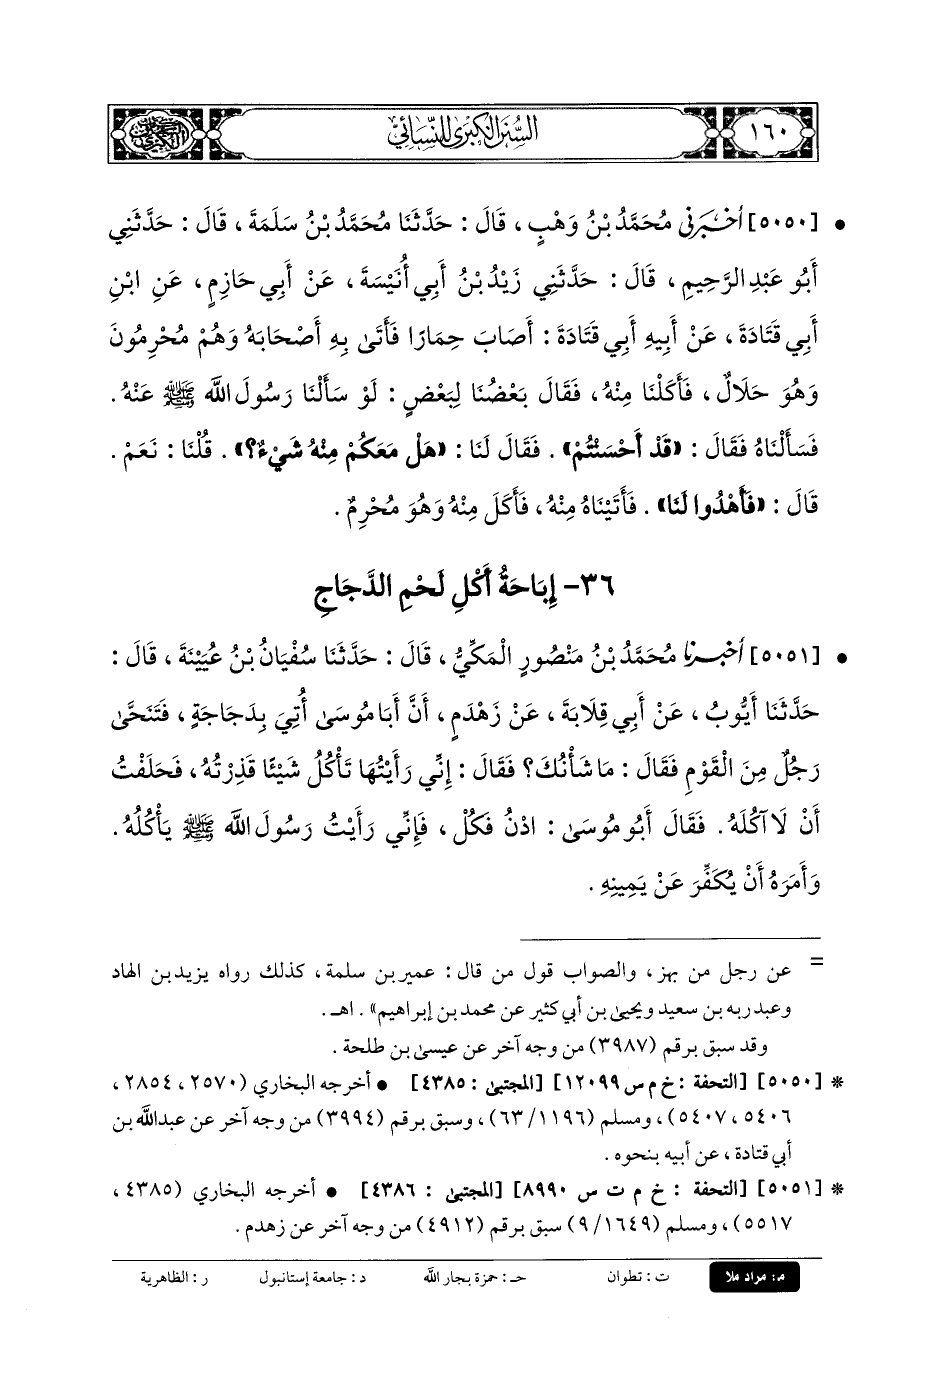 ١٦٠
السُّنَنُ الْكِبْرَىٰ لِلنَّسَائِيِّ
• [٥٠٥٠] أَخْبَرَنِي مُحَمَّدُ بْنُ وَهْبٍ ، قَالَ : حَدَّثَنَا مُحَمَّدُ بْنُ سَلَمَةَ ، قَالَ : حَدَّثَنِي
أَبُو عَبْدِ الرَّحِيمِ ، قَالَ : حَدَّثَنِي زَيْدُ بْنُ أَبِي أُنَيْسَةَ ، عَنْ أَبِي حَازِمٍ ، عَنِ ابْنِ
أَبِي قَتَادَةَ ، عَنْ أَبِيهِ أَبِي قَتَادَةَ : أَصَابَ حِمَارًا فَأَتَىٰ بِهِ أَصْحَابَهُ وَهُمْ مُحْرِمُونَ
وَهُوَ حَلَالٌ ، فَأَكَلْنَا مِنْهُ ، فَقَالَ بَعْضُنَا لِبَعْضٍ : لَوْ سَأَلْنَا رَسُولَ اللَّه ﷺ عَنْهُ .
فَسَأَلْنَاهُ فَقَالَ : «قَدْ أَحْسَنْتُمْ» . فَقَالَ لَنَا : «هَلْ مَعَكُمْ مِنْهُ شَيْءٌ؟» . قُلْنَا : نَعَمْ .
قَالَ : «فَأَهْدُوا لَنَا» . فَأَتَيْنَاهُ مِنْهُ ، فَأَكَلَ مِنْهُ وَهُوَ مُحْرِمٌ .
٣٦- إِبَاحَةُ أَكْلِ لَحْمِ الدَّجَاجِ
• [٥٠٥١] أَخْبَرَنَا مُحَمَّدُ بْنُ مَنْصُورٍ الْمَكِّيُّ ، قَالَ : حَدَّثَنَا سُفْيَانُ بْنُ عُيَيْنَةَ ، قَالَ :
حَدَّثَنَا أَيُّوبُ ، عَنْ أَبِي قِلَابَةَ ، عَنْ زَهْدَمٍ ، أَنَّ أَبَا مُوسَىٰ أُتِيَ بِدَجَاجَةٍ ، فَتَنَحَّىٰ
رَجُلٌ مِنَ الْقَوْمِ فَقَالَ : مَا شَأْنُكَ؟ فَقَالَ : إِنِّي رَأَيْتُهَا تَأْكُلُ شَيْئًا قَذِرْتُهُ ، فَحَلَفْتُ
أَنْ لَا آكُلَهُ . فَقَالَ أَبُو مُوسَىٰ : ادْنُ فَكُلْ ، فَإِنِّي رَأَيْتُ رَسُولَ اللَّه ﷺ يَأْكُلُهُ .
وَأَمَرَهُ أَنْ يُكَفِّرَ عَنْ يَمِينِهِ .
= عن رجل من بهز ، والصواب قول من قال : عمير بن سلمة ، كذلك رواه يزيد بن الهاد
وعبد ربه بن سعيد ويحيى بن أبي كثير عن محمد بن إبراهيم» . اهـ .
وقد سبق برقم (٣٩٨٧) من وجه آخر عن عيسى بن طلحة .
* [٥٠٥٠] [التحفة : خ م س ١٢٠٩٩] [المجتبى : ٤٣٨٥] • أخرجه البخاري (٢٥٧٠ ، ٢٨٥٤ ،
٥٤٠٦ ، ٥٤٠٧) ، ومسلم (١١٩٦/ ٦٣) ، وسبق برقم (٣٩٩٤) من وجه آخر عن عبد الله بن
أبي قتادة ، عن أبيه بنحوه .
* [٥٠٥١] [التحفة : خ م ت س ٨٩٩٠] [المجتبى : ٤٣٨٦] • أخرجه البخاري (٤٣٨٥ ،
٥٥١٧) ، ومسلم (١٦٤٩/ ٩) سبق برقم (٤٩١٢) من وجه آخر عن زهدم .
م: مراد ملا ت : تطوان حـ : حمزة بجار الله د : جامعة إستانبول ر : الظاهرية